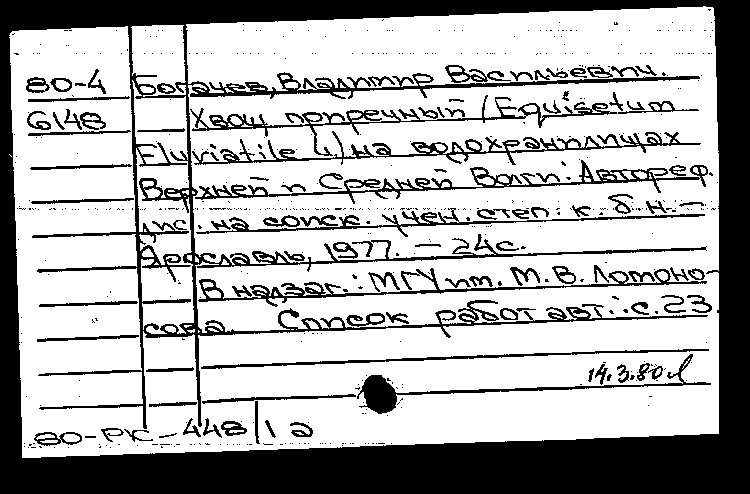 80-4 Богачев, Владимир Васильевич.
6148 Хвощ приречный (Equisetum
Fluviatile L) на водохранилищах
Верхней и Средней Волги: Автореф.
дис. на соиск. учен. степ. к. б. н. –
Ярославль, 1977. – 24с.
В надзаг.: МГУ им. М. В. Ломоно-
сова. Список работ авт.: с. 23.
14.3.80
80-РК-448 | 1 а